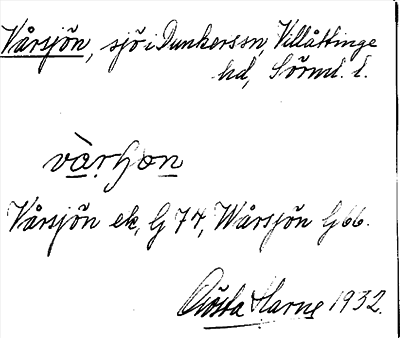 Vårsjön, sjö i Dunkerssn, Villåttinge
hd, Sörml. l.
Vårsjön ek, G 74, Wårsjön G 66.
Gösta Harne 1932.